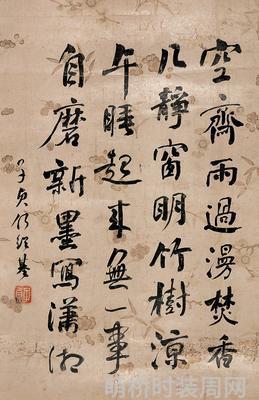 空齋雨過漫焚香
几靜窗明竹樹涼
午睡起來無一事
自磨新墨寫瀟湘
子貞何紹基
明桥时装周网